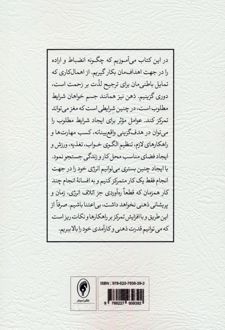 در این کتاب می‌آموزیم که چگونه انضباط و اراده
را در جهت اهداف‌مان بکار گیریم. از اهمال‌کاری که
تمایل باطنی‌مان برای ترجیح لذّت بر زحمت است،
دوری گزینیم. ذهن نیز همانند جسم خواهان شرایط
مطلوب است، در چنین شرایطی است که مغز می‌تواند
تمرکز کند. عوامل مؤثر برای ایجاد شرایط مطلوب را
می‌توان در هدف‌گزینی واقع‌بینانه، کسب مهارت‌ها و
راهکارهای لازم، تنظیم الگوی خواب، تغذیه، ورزش و
ایجاد فضای مناسب محل کار و زندگی جستجو نمود.
با ایجاد چنین بستری می‌توانیم انرژی خود را در جهت
انجام فقط یک کار متمرکز کنیم و به افسانهٔ انجام چند
کار همزمان که قطعاً ره‌آوردی جز اتلاف انرژی، زمان و
پریشانی ذهنی نخواهد داشت، بی‌اعتنا باشیم. صرفاً از
این طریق و با افزایش تمرکز بر راهکارها و نکات ریز است
که می‌توانیم قدرت ذهنی و کارآمدی خود را بالا ببریم.